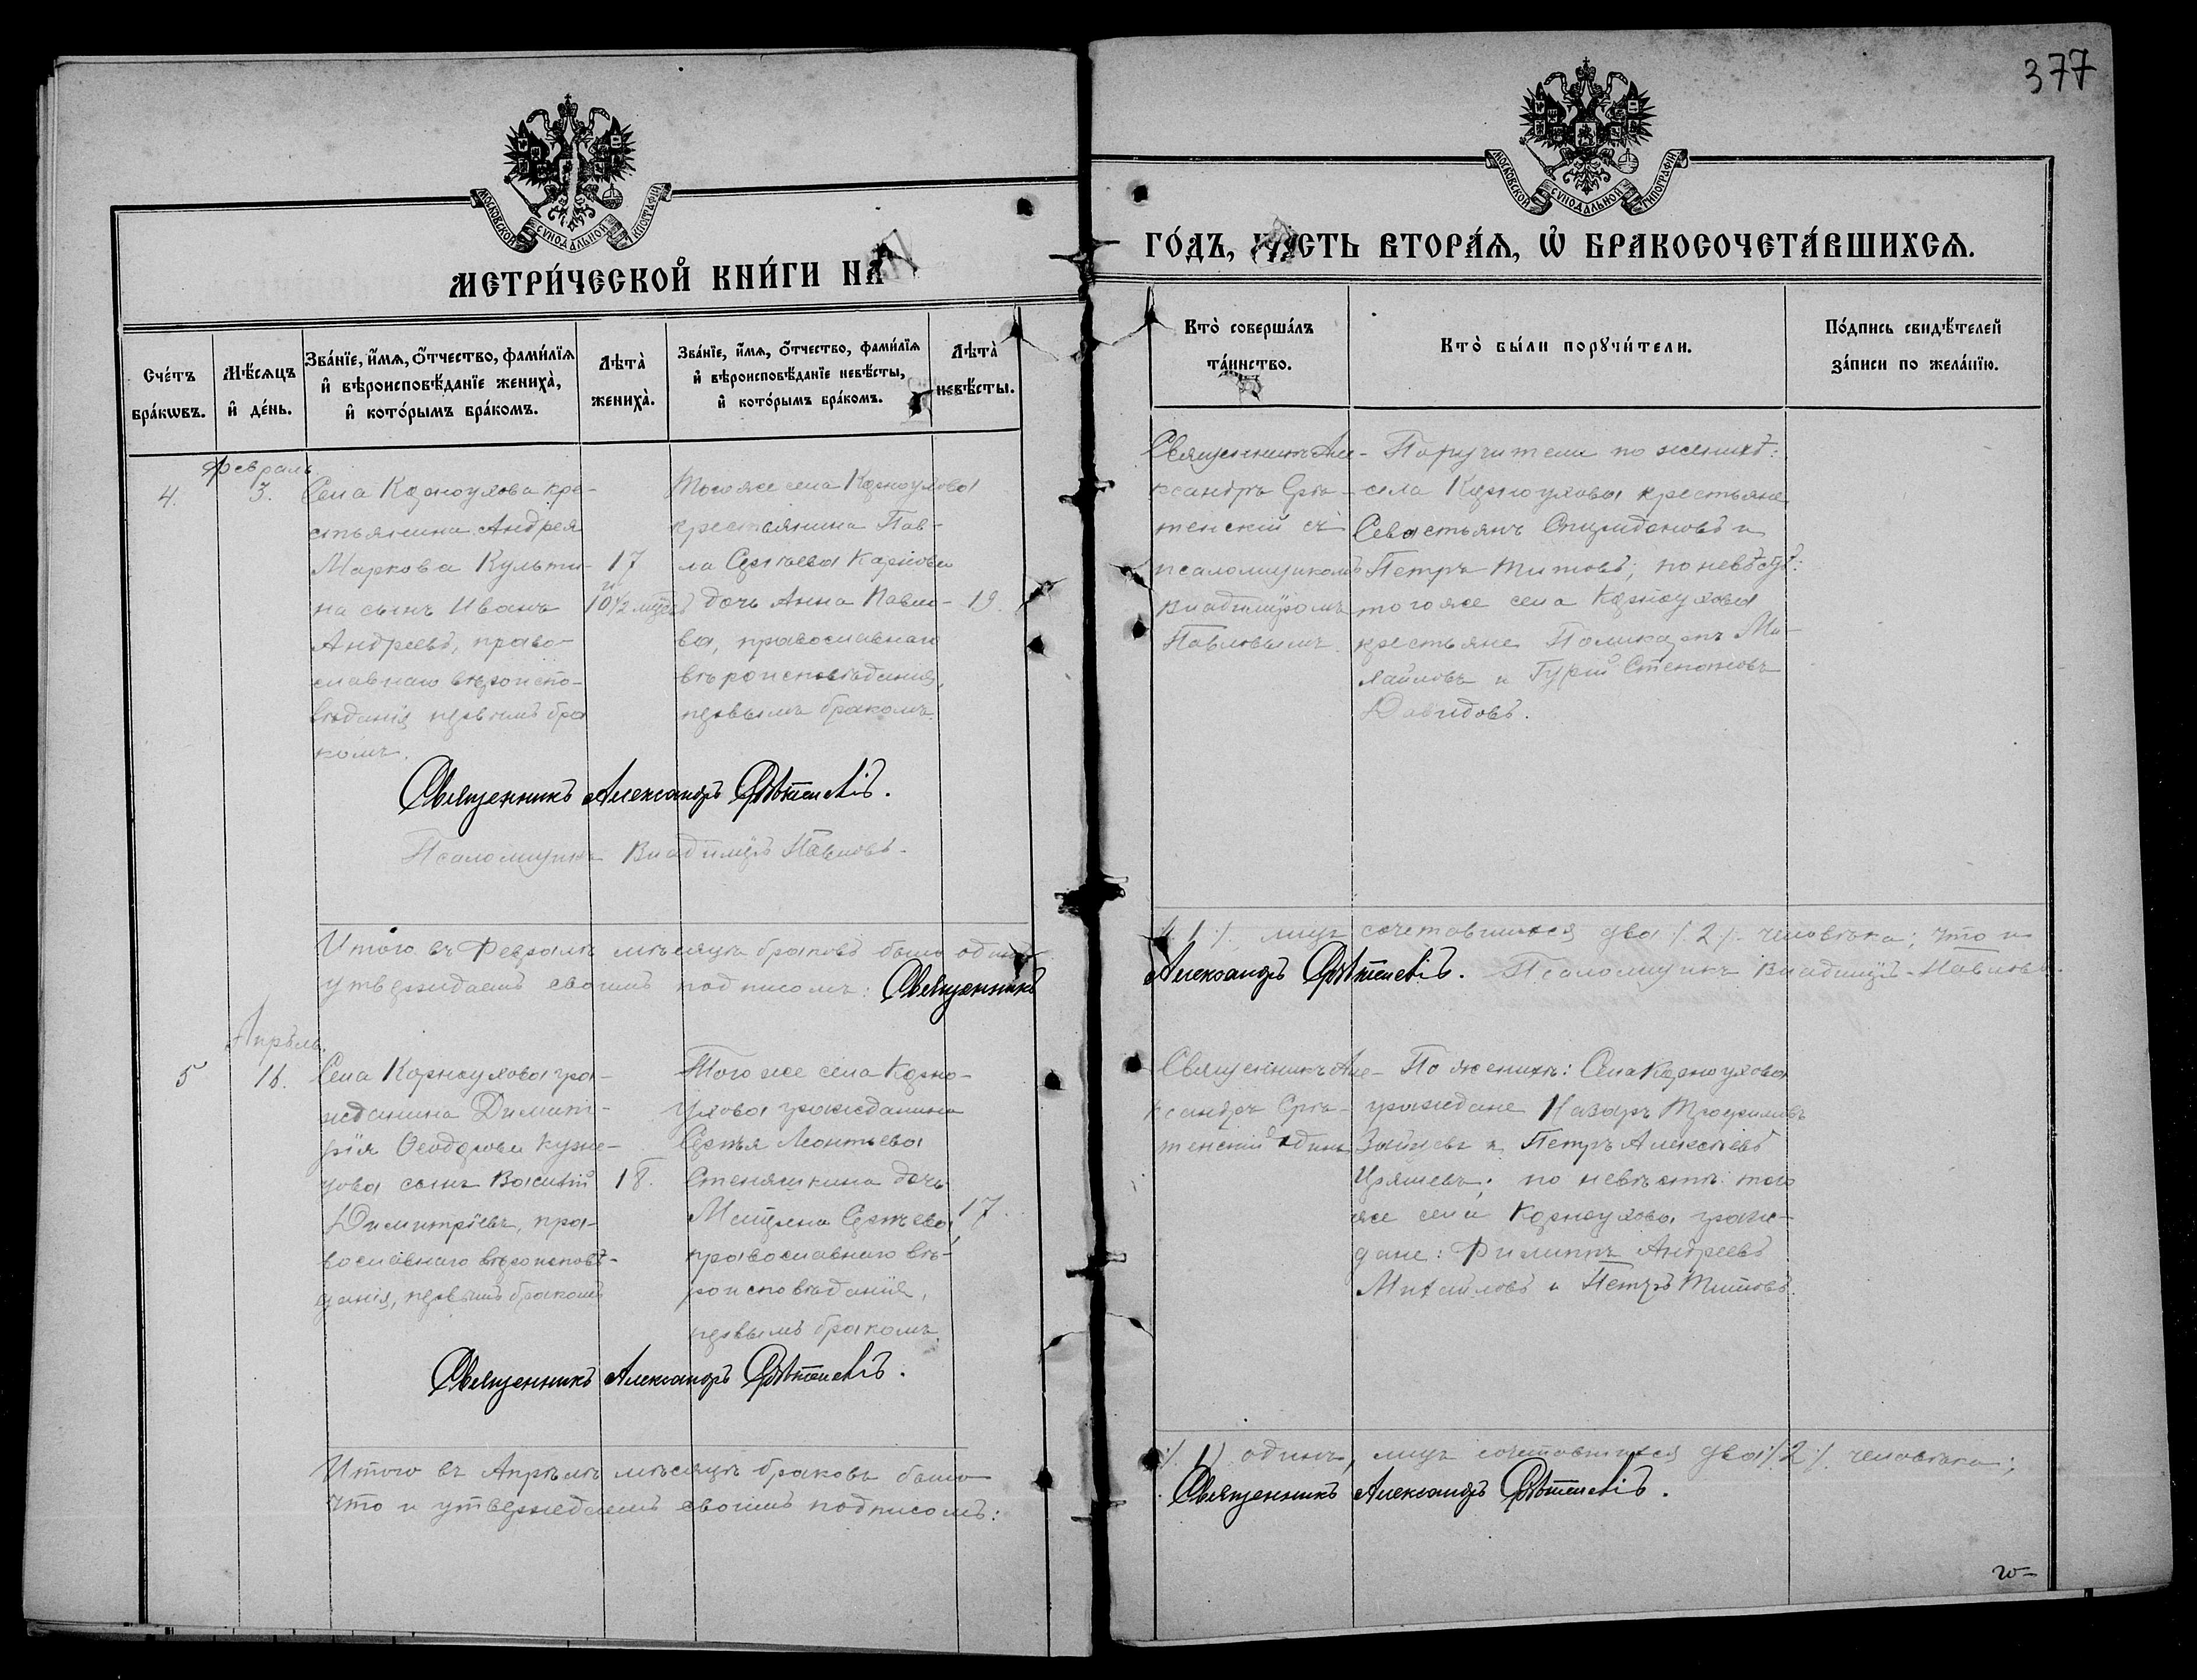 377
МОСКОВСКОЙ СѴНОДАЛЬНОЙ ТИПОГРАФІИ
МОСКОВСКОЙ СѴНОДАЛЬНОЙ ТИПОГРАФІИ
МЕТРИ́ЧЕСКОЙ КНИ́ГИ НА
ГО́ДЪ, ЧАСТЬ ВТОРА́Ѧ, Ѡ҆ БРАКОСОЧЕТА́ВШИХСѦ.
Сче́тъ
бра́кѡвъ.
Мѣ́сѧцъ
и҆ де́нь.
Зва́нїе, и҆́мѧ, ѻ҆́тчество, фами́лїѧ
и҆ вѣроисповѣ́данїе жениха̀,
и҆ кото́рымъ бра́комъ.
Лѣта̀
жениха̀.
Зва́нїе, и҆́мѧ, ѻ҆́тчество, фами́лїѧ
и҆ вѣроисповѣ́данїе невѣ́сты,
и҆ кото́рымъ бра́комъ.
Лѣта̀
невѣ́сты.
Кто̀ соверша́лъ
та́инство.
Кто̀ бы́ли порꙋчи́тели.
По́дпись свидѣ́телей
за́писи по жела́нїю.
Февраль
4.
3.
Села Корноухова кре-
стьянина Андрея
Маркова Культи-
на сынъ Иванъ
Андреевъ, право-
славнаго вѣроиспо-
вѣданія первымъ бра
комъ.
17
и
10½ мѣс
Того же села Корноухова
крестьянина Пав-
ла Сергѣева Карпова
дочь Анна Павло-
ва, православнаго
вѣроисповѣданія,
первымъ бракомъ.
19.
Священникъ Але-
ксандръ Срѣ-
тенскій съ
псаломщикомъ
Владиміромъ
Павловымъ.
Поручители по женихѣ:
села Корноухова крестьяне
Севастьянъ Спиридоновъ и
Петръ Титовъ; по невѣстѣ:
того же села Корноухова
крестьяне Поликарпъ Ми-
хайловъ и Гурій Степановъ
Давидовъ.
Священникъ Александръ Срѣтенскій.
Псаломщикъ Владиміръ Павловъ.
Итого въ Февралѣ мѣсяцѣ браковъ было одинъ
/. 1 /. лицъ сочетавшихся два /. 2 /. человѣка; что и
утверждаемъ своимъ подписомъ: Священникъ
Александръ Срѣтенскій. Псаломщикъ Владиміръ Павловъ.
Апрѣль.
5
16.
Села Корноухова гра-
жданина Димит-
рія Ѳеодорова Кузне-
цова сынъ Василій
Димитріевъ, пра-
вославнаго вѣроисповѣ-
данія, первымъ бракомъ
18.
Того же села Корно-
ухова гражданина
Сергѣя Леонтьева
Стеняшкина дочь
Сергѣева,
православнаго вѣ-
роисповѣданія,
первымъ бракомъ.
17.
Священникъ Але-
ксандръ Срѣ-
тенскій одинъ
По женихѣ: Села Корноухова
граждане Назаръ Трофимовъ
Зайцевъ и Петръ Алексѣевъ
по невѣстѣ: того
же села Корноухова граж-
дане: Филиппъ Андреевъ
Михайловъ и Петръ Титовъ.
Священникъ Александръ Срѣтенскій.
Итого въ Апрѣлѣ мѣсяцѣ браковъ было
/. 1 /. одинъ, лицъ сочетавшихся два /. 2 /. человѣка;
что и утверждаемъ своимъ подписомъ:
Священникъ Александръ Срѣтенскій.